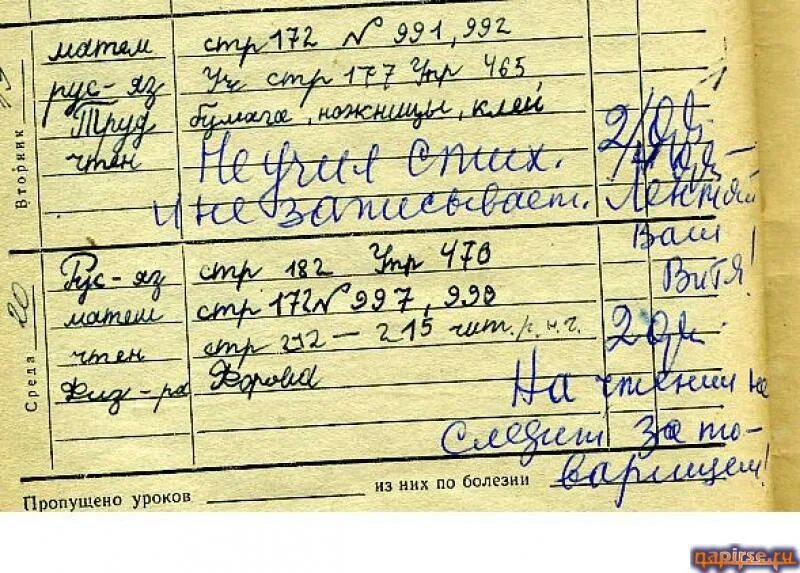 19
Вторник
матем стр 172 № 991, 992
рус-яз Уч стр 177 Упр 465
Труд бумага, ножницы, клей
чтен Не учил стих. 2/
и не записывает. Лентяй
Ваш
Витя!
20
Среда
Рус-яз стр 182 Упр 470
матем стр 172 № 997, 998
чтен стр 212 – 215 чит. 2
Физ-ра Форма
На чтении не
следит за то-
варищем!
Пропущено уроков из них по болезни
napirse.ru